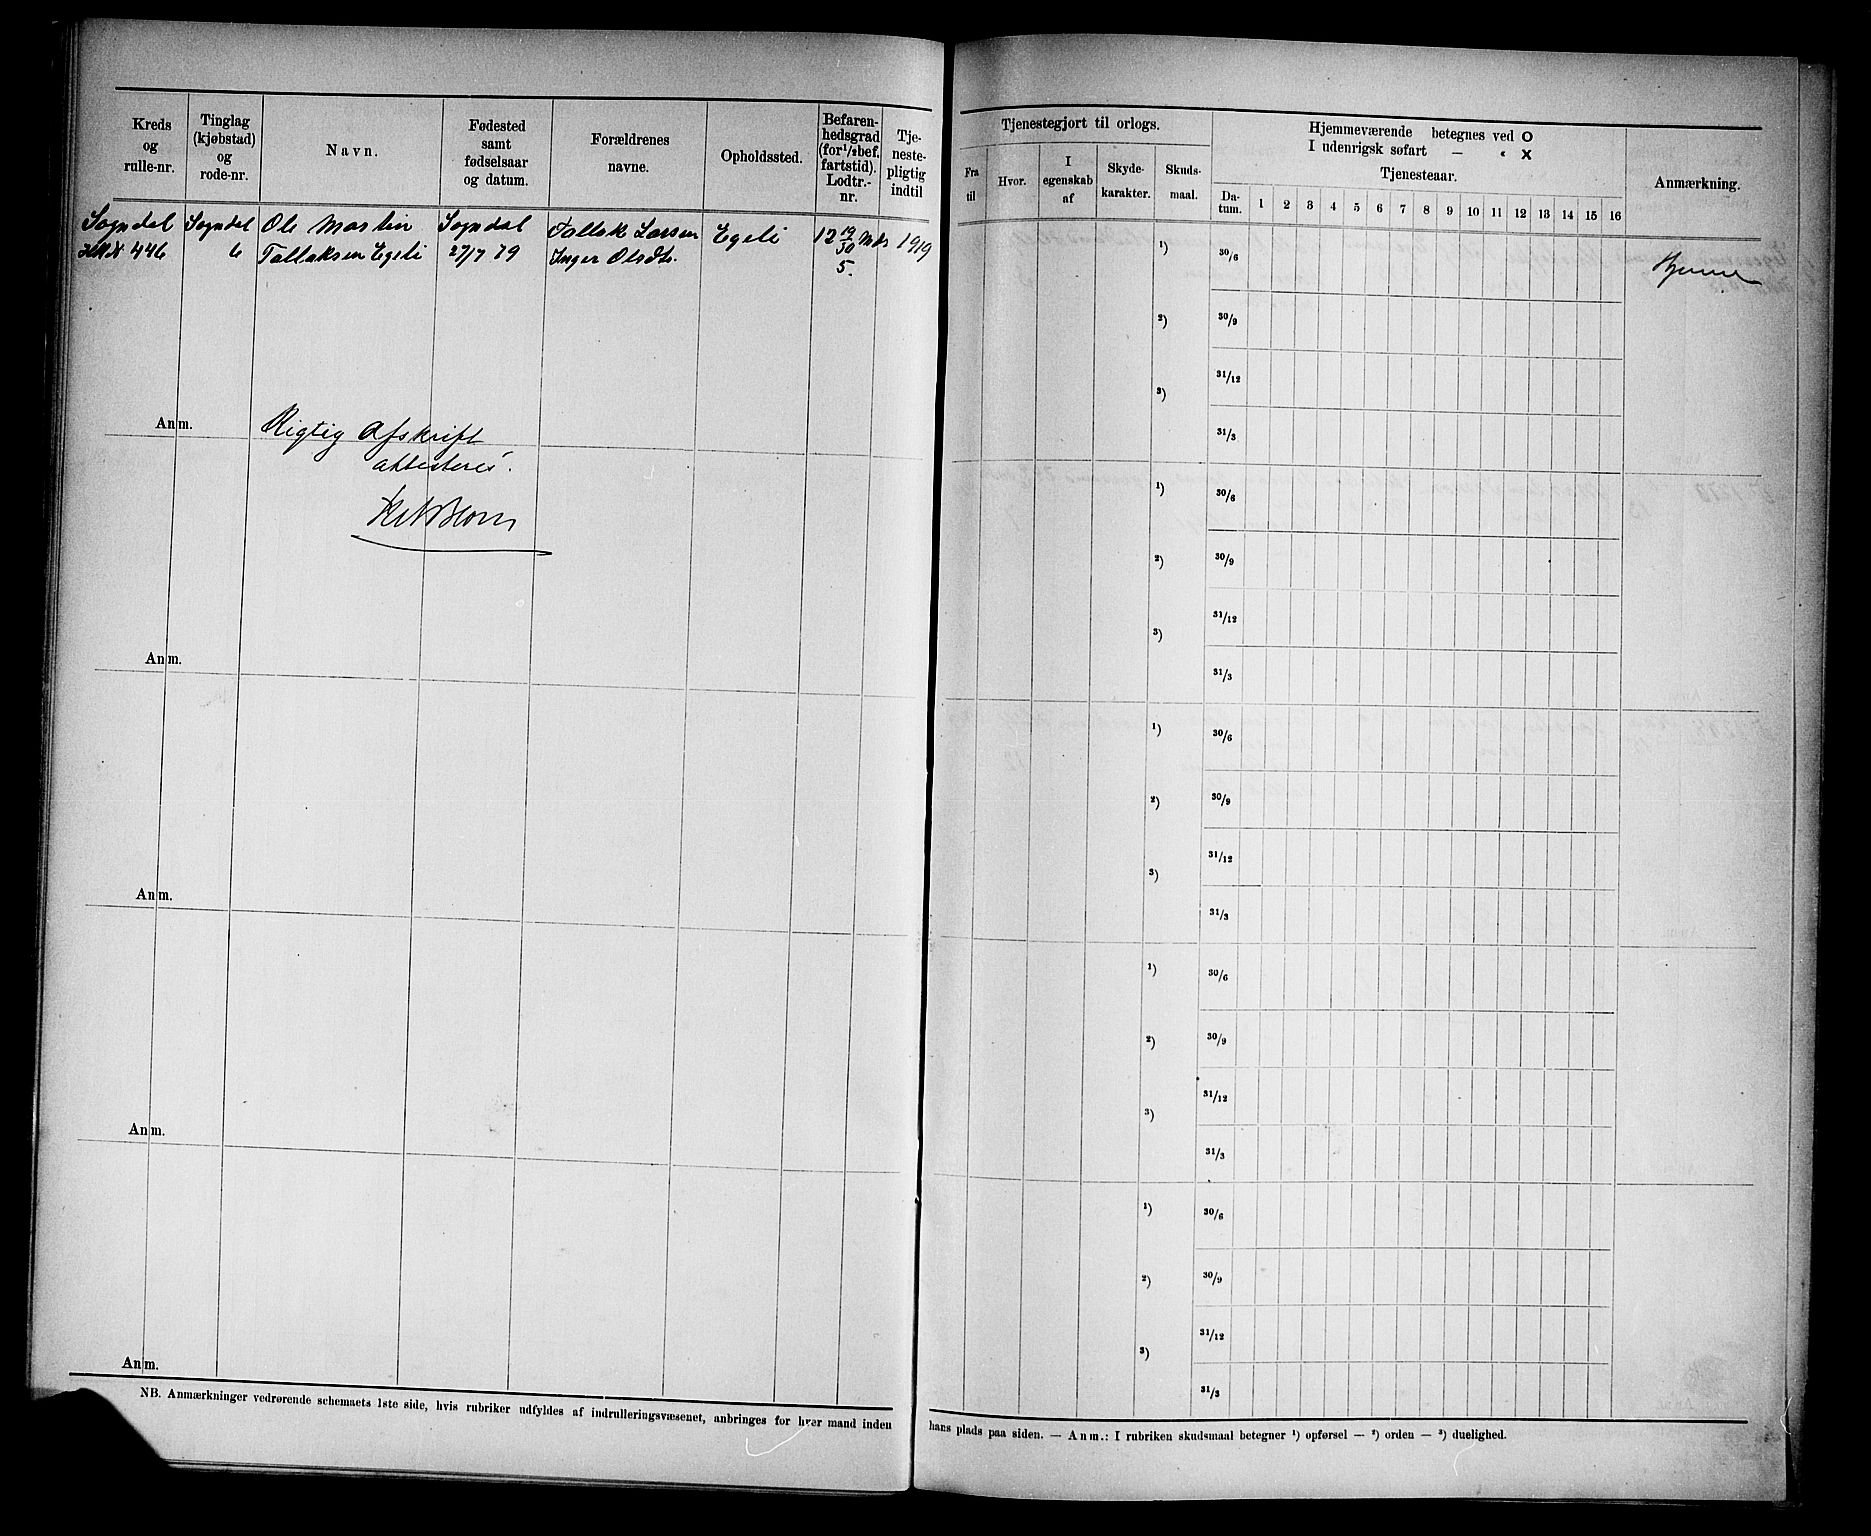 Kreds
og
rulle-nr.
Tinglag
(kjøbstad)
og
rode-nr.
Navn.
Fødested
samt
fødselsaar
og datum.
Forældrenes
navne.
Opholdssted.
Befaren-
hedsgrad
(for 1/2 bef.
fartstid).
Lodtr.-
nr.
Tje-
neste-
pligtig
indtil
Sogndal
446
Sogndal
6
Ole Martin
Tallaksen Egeli
Sogndal
27/7 79
Tallak Larsen
Inger Olsdtr.
Egeli
12 19/30 Mdr
5.
1919
Anm.
Rigtig Afskrift
attesteres.
Anm.
Anm.
Anm.
Anm.
NB. Anmærkninger vedrørende schemaets 1ste side, hvis rubriker udfyldes af indrulleringsvæsenet, anbringes for hver mand inden
Tjenestegjort til orlogs.
Fra
til
Hvor.
I
egenskab
af
Skyde-
karakter.
Skuds-
maal.
Hjemmeværende betegnes ved O
I udenrigsk søfart — " X
Tjenesteaar.
Da-
tum.
1 2 3 4 5 6 7 8 9 10 11 12 13 14 15 16
Anmærkning.
Hjemme
1)
30/6
2)
30/9
31/12
3)
31/3
1)
30/6
2)
30/9
31/12
3)
31/3
1)
30/6
2)
30/9
31/12
3)
31/3
1)
30/6
2)
30/9
31/12
3)
31/3
1)
30/6
2)
30/9
31/12
3)
31/3
hans plads paa siden. — Anm.: I rubriken skudsmaal betegner 1) opførsel — 2) orden — 3) duelighed.